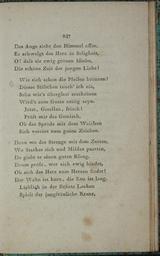 247
Das Auge sieht den Himmel offen,
Es schwelgt das Herz in Seligkeit,
O! daß sie ewig grünen bliebe,
Die schöne Zeit der jungen Liebe!
Wie sich schon die Pfeifen bräunen!
Dieses Stäbchen tauch' ich ein,
Sehn wir's überglast erscheinen
Wird's zum Gusse zeitig seyn.
Jetzt, Gesellen, frisch!
Prüft mir das Gemisch,
Ob das Spröde mit dem Weichen
Sich vereint zum guten Zeichen.
Denn wo das Strenge mit dem Zarten,
Wo Starkes sich und Mildes paarten,
Da giebt es einen guten Klang.
Drum prüfe, wer sich ewig bindet,
Ob sich das Herz zum Herzen findet!
Der Wahn ist kurz, die Reu ist lang.
Lieblich in der Bräute Locken
Spielt der jungfräuliche Kranz,